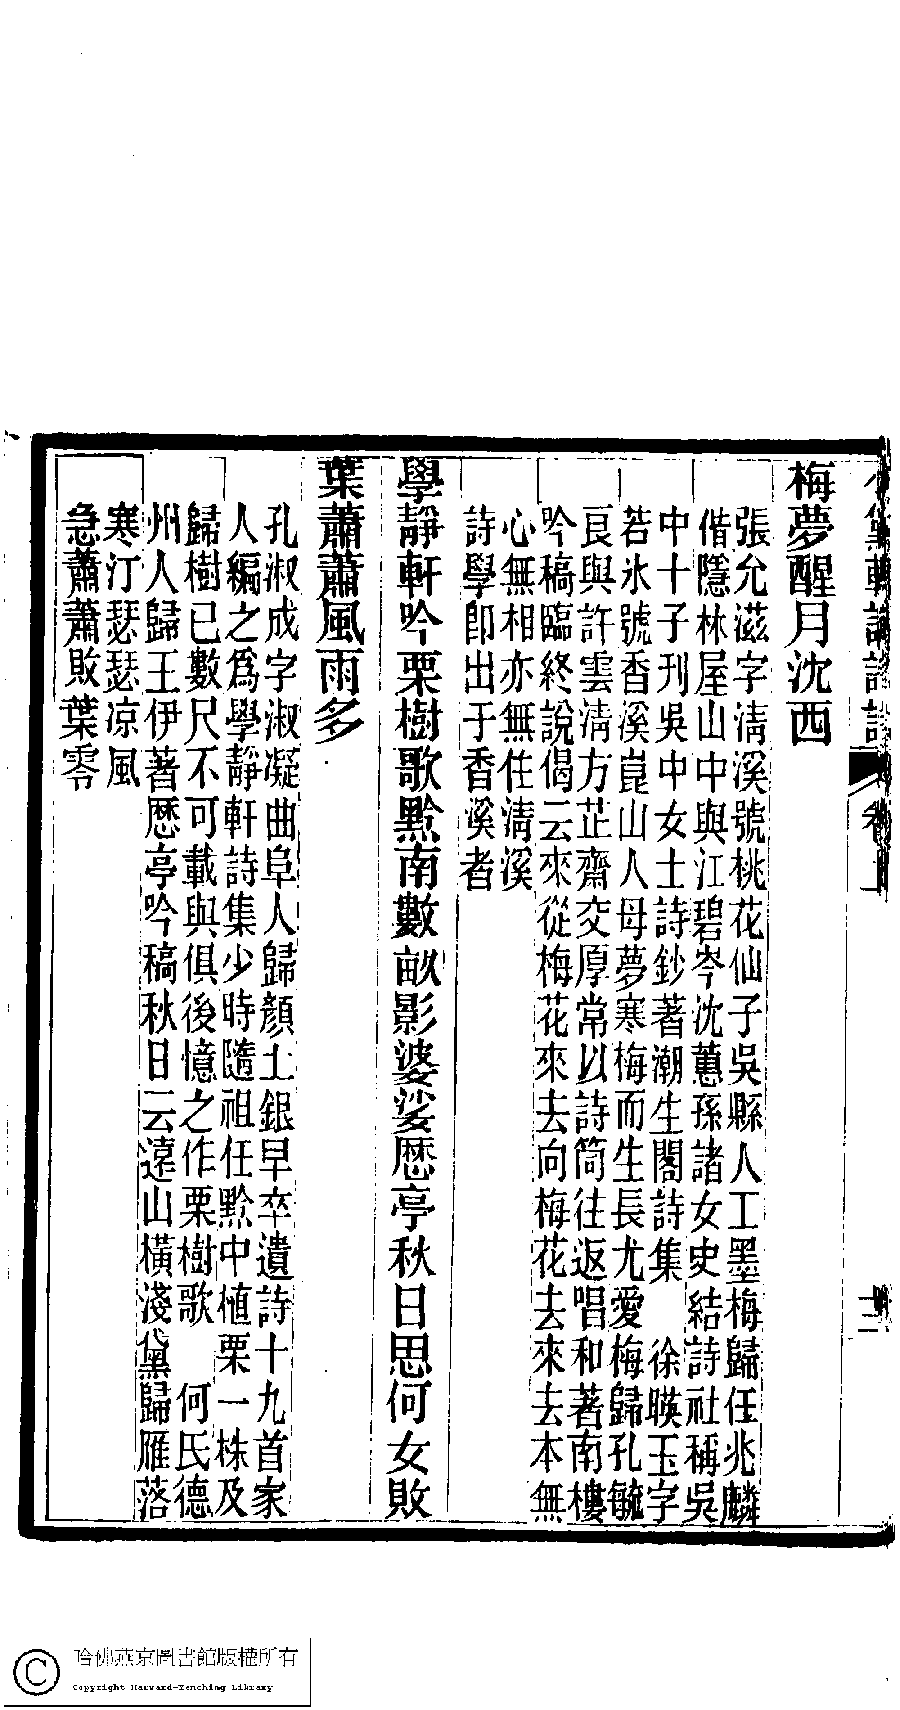 梅夢醒月沈西
張允滋字清溪號桃花仙子吳縣人工墨梅歸任兆麟
偕隱林屋山中與江碧岑沈蕙孫諸女史結詩社稱吳
中十子刊吳中女士詩鈔著潮生閣詩集　徐暎玉字
若氷號香溪崑山人母夢寒梅而生長尤愛梅歸孔毓
良與許雲清方芷齋交厚常以詩筒往返唱和著南樓
吟稿臨終說偈云來從梅花來去向梅花去來去本無
心無相亦無住清溪
詩學卽出于香溪者
學靜軒吟栗樹歌黔南數畝影婆娑歷亭秋日思何女敗
葉蕭蕭風雨多
孔淑成字淑凝曲阜人歸顏士銀早卒遺詩十九首家
人編之爲學靜軒詩集少時隨祖任黔中植栗一株及
歸樹已數尺不可載與俱後憶之作栗樹歌　何氏德
州人歸王伊著歷亭吟稿秋日云遠山橫淺黛歸雁落
寒汀瑟瑟凉風
急蕭蕭敗葉零
哈佛燕京圖書館版權所有
Copyright Harvard-Yenching Library